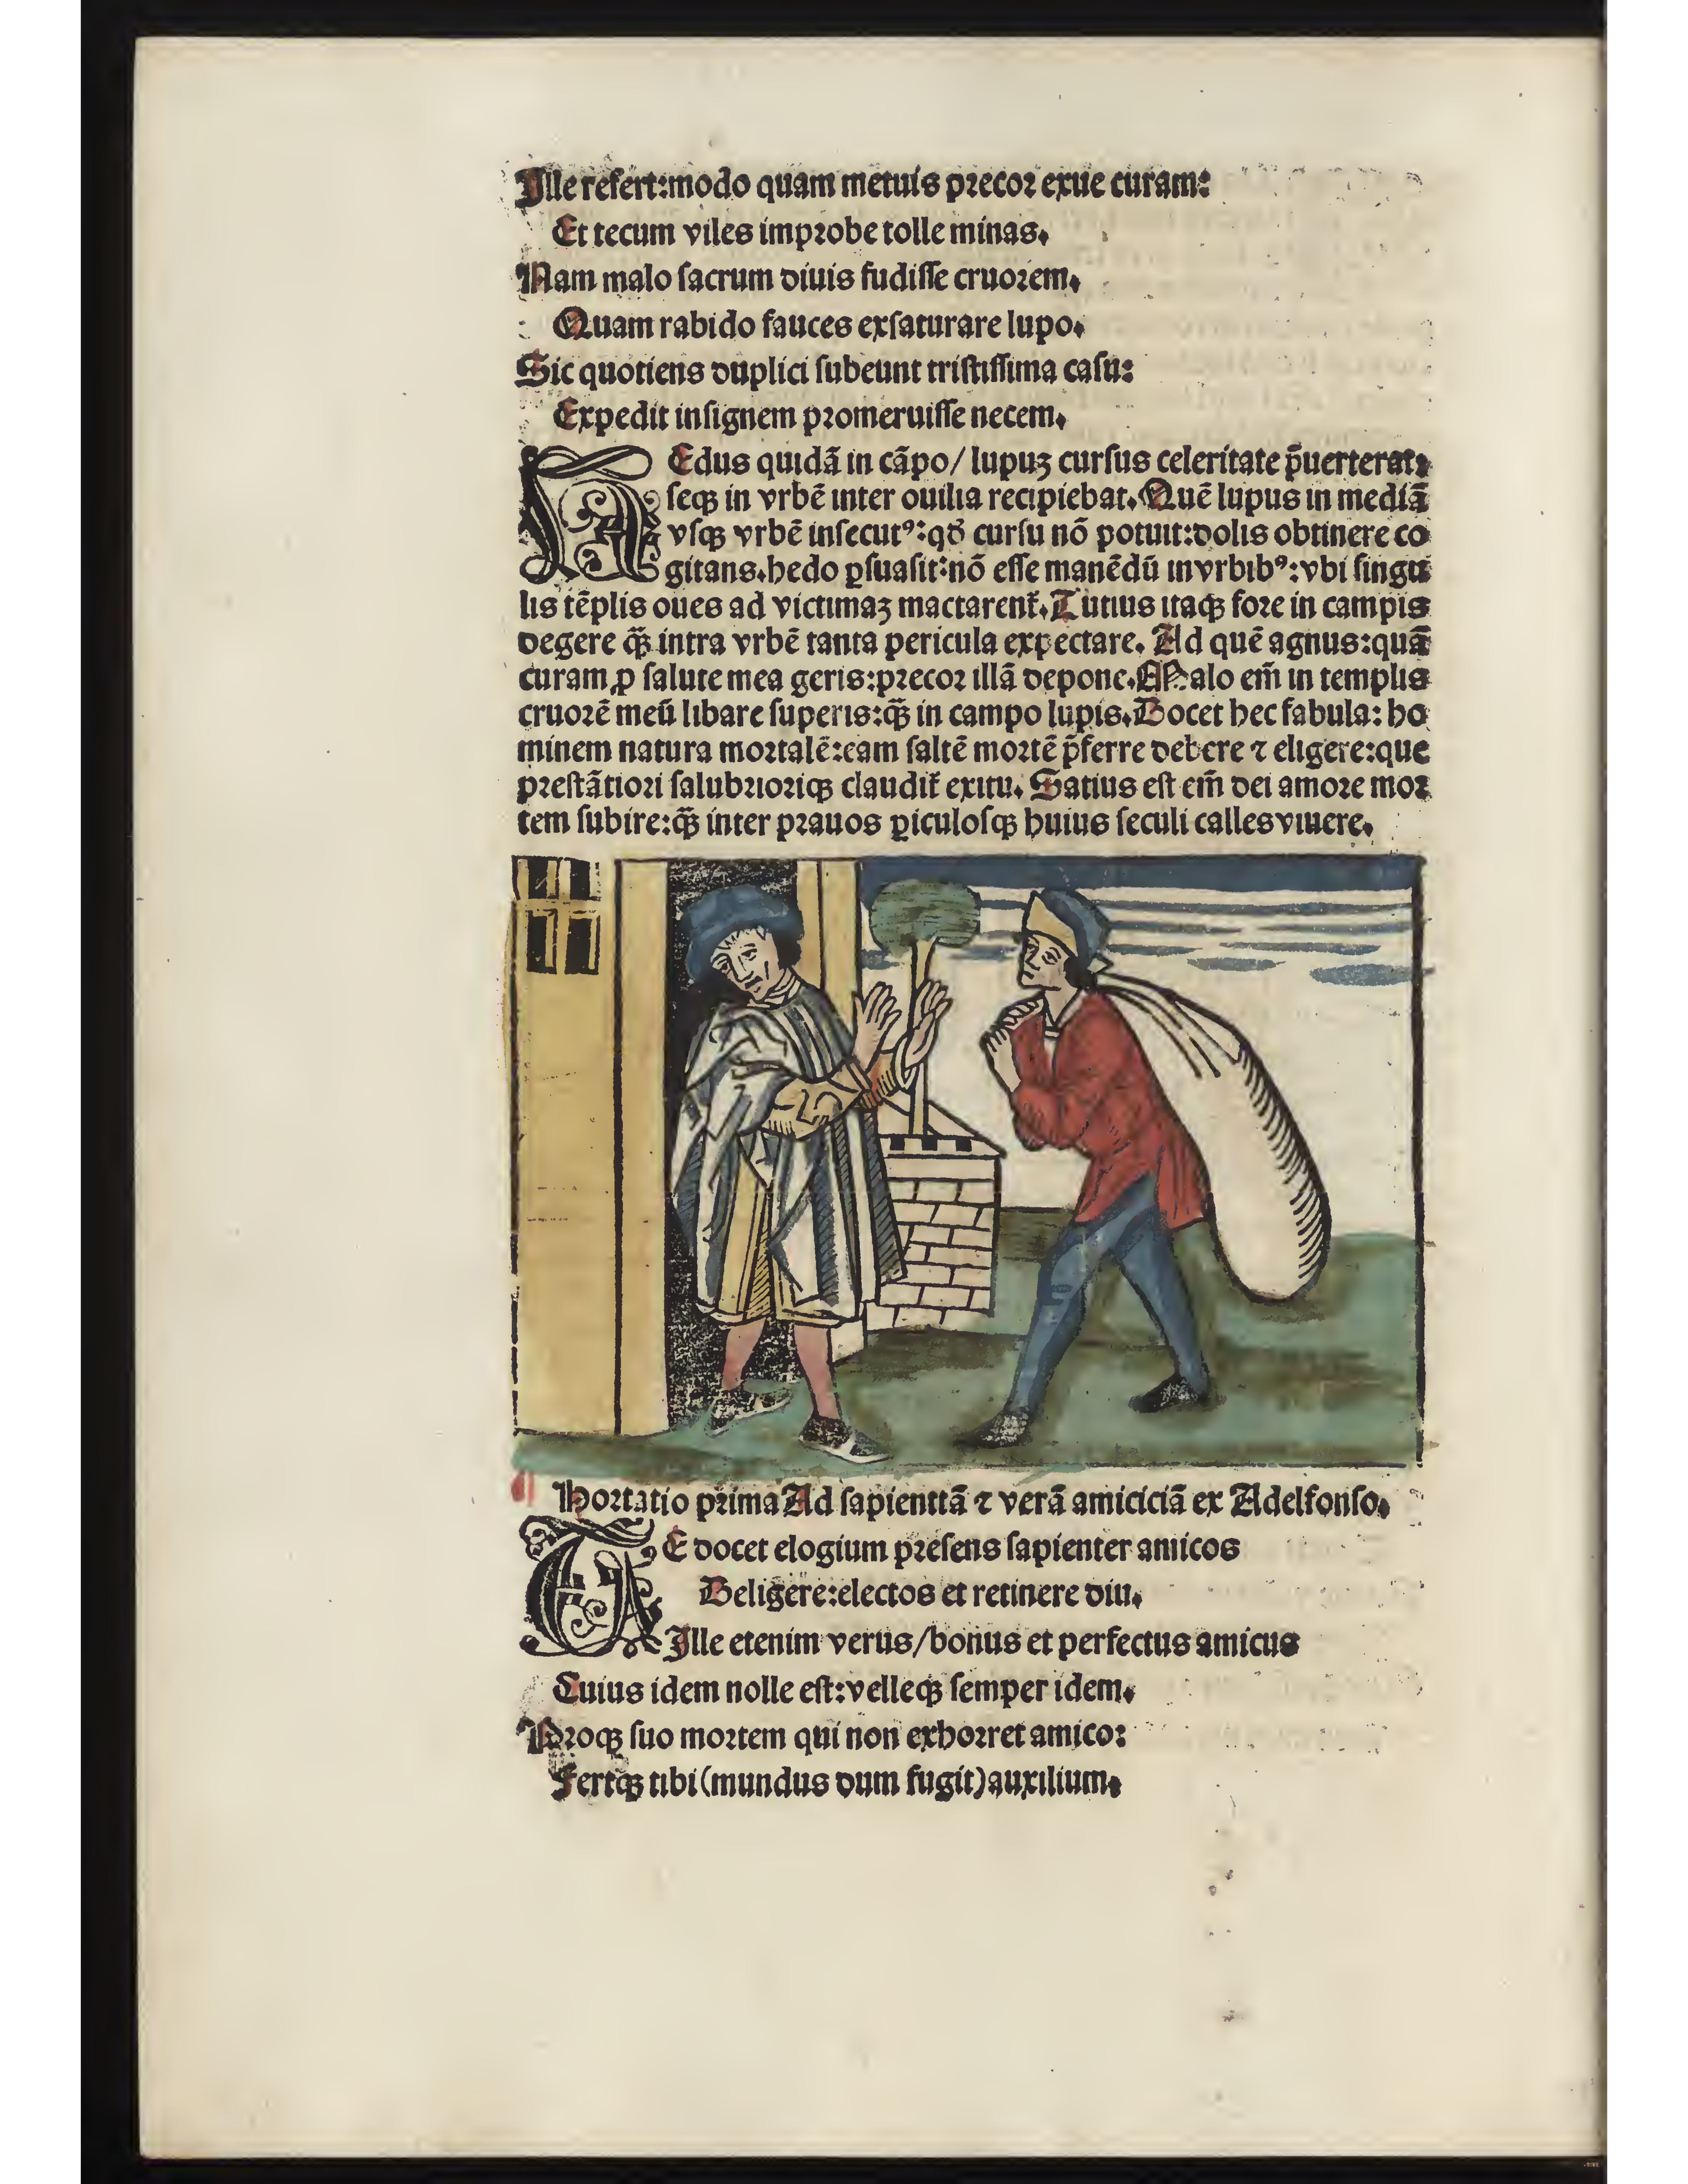 Ille refert:modo quam metuis precor exue curam:
Et tecum viles improbe tolle minas.
Nam malo sacrum diuis fudisse cruorem.
Quam rabido fauces exsaturare lupo.
Sic quotiens duplici subeunt tristissima casu:
Expedit insignem promeruisse necem.
HEdus quidā in cāpo/ lupuꝫ cursus celeritate p̄uerterat:
seqꝫ in vrbē inter ouilia recipiebat. Quē lupus in mediā
vsqꝫ vrbē insecutꝰ:qđ cursu nō potuit:dolis obtinere co
gitans.hedo ꝑsuasit:nō esse manēdū invrbibꝰ:vbi singu
lis tēplis oues ad victimaꝫ mactarent᷑. Tutius itaqꝫ fore in campis
degere qꝫ̄ intra vrbē tanta pericula expectare. Ad quē agnus:quā
curam ꝓ salute mea geris:precor illā depone. Malo em̄ in templis
cruorē meū libare superis:qꝫ̄ in campo lupis. Docet hec fabula: ho
minem natura mortalē:eam saltē mortē p̄ferre debere ⁊ eligere:que
prestātiori salubrioriqꝫ claudit᷑ exitu. Satius est em̄ dei amore mor
tem subire:qꝫ̄ inter prauos ꝑiculosqꝫ huius seculi calles viuere.
Hortatio prima Ad sapientiā ⁊ verā amiciciā ex Adelfonso.
TE docet elogium presens sapienter amicos
Deligere:electos et retinere diu.
Ille etenim verus/bonus et perfectus amicus
Cuius idem nolle est:velleqꝫ semper idem.
Proqꝫ suo mortem qui non exhorret amico:
Fertqꝫ tibi (mundus dum fugit) auxilium.